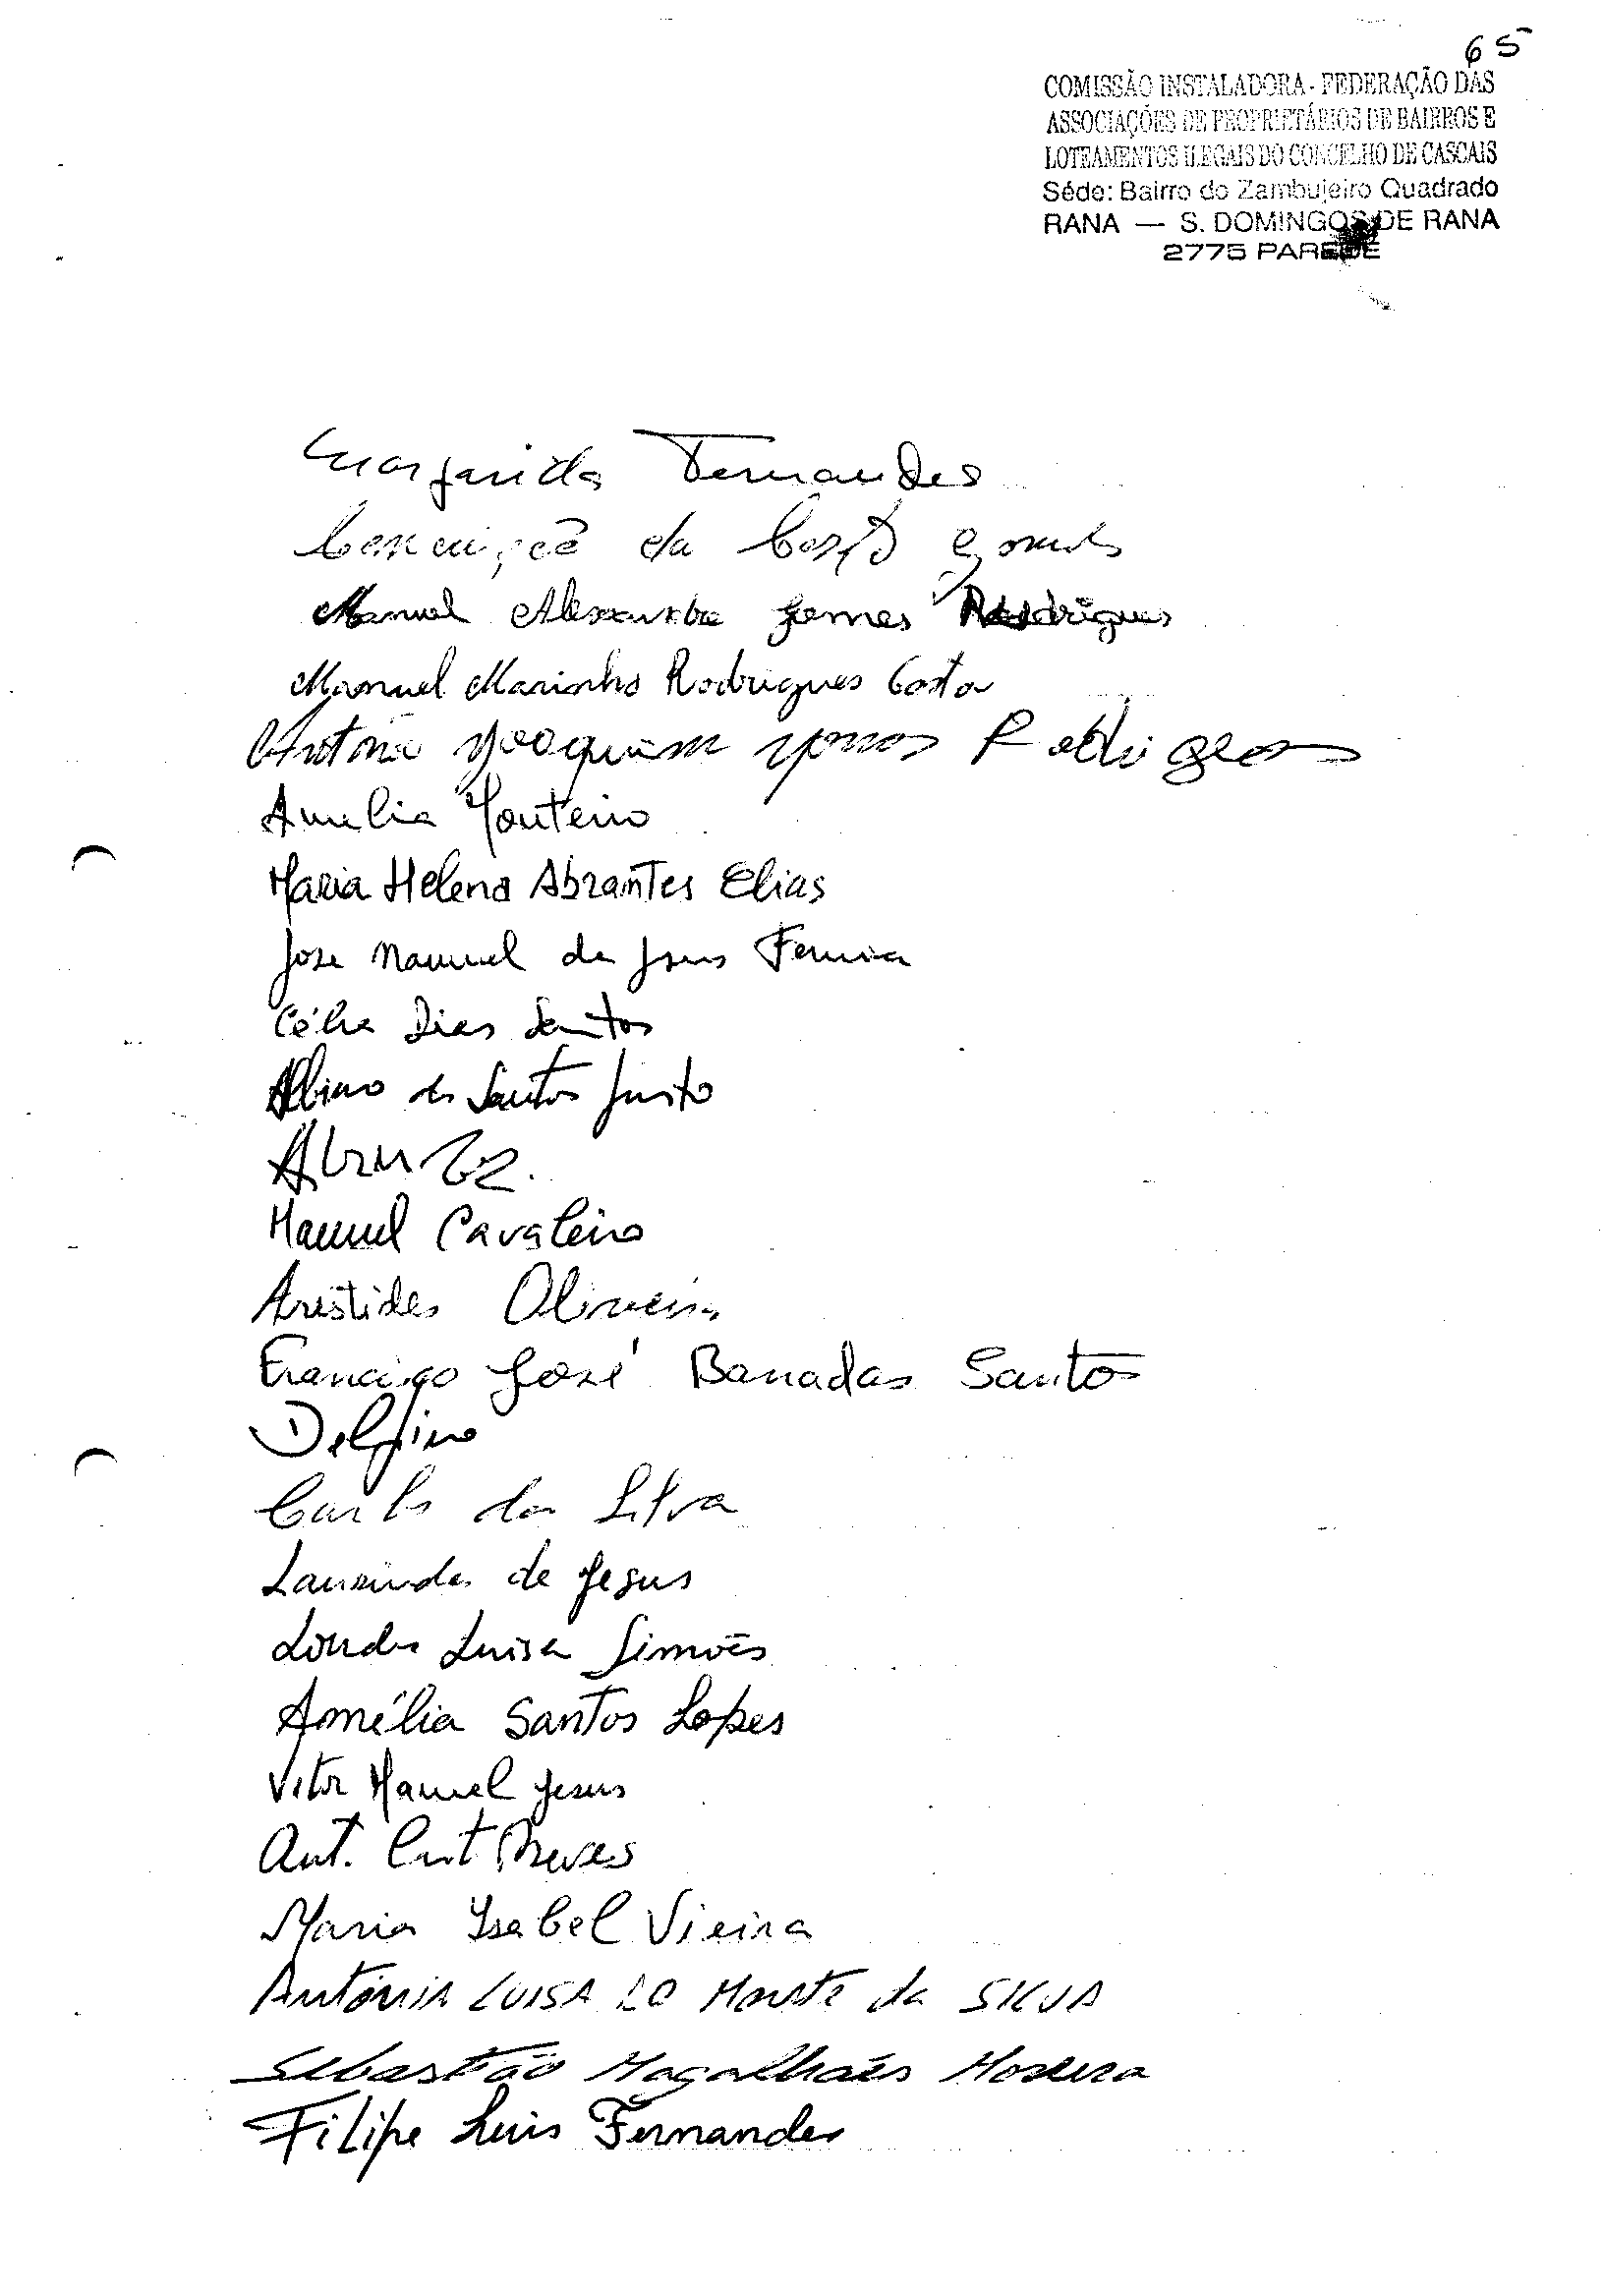 65
COMISSÃO INSTALADORA - FEDERAÇÃO DAS
ASSOCIAÇÕES DE PROPRIETÁRIOS DE BAIRROS E
LOTEAMENTOS ILEGAIS DO CONCELHO DE CASCAIS
Séde: Bairro do Zambujeiro Quadrado
RANA — S. DOMINGOS DE RANA
2775 PAREDE
Margarida Fernandes
Conceição da Costa Gomes
Manuel Alexandre Gomes Rodrigues
Manuel Marinho Rodrigues Costa
António Joaquim Rodrigues
Amelia Monteiro
Maria Helena Abrantes Elias
Jose Manuel de Jesus Ferreira
Célia Dias Santos
Albino dos Santos Justo
Manuel Cavaleiro
Aristides Oliveira
Francisco José Banadas Santos
Delfino
Carlos da Silva
Laurinda de Jesus
Lourdes Luisa Simões
Amélia Santos Lopes
Vitor Manuel Jesus
Ant. Neves
Maria Isabel Vieira
António LUISA do Monte da SILVA
Sebastião Magalhães Moreira
Filipe Luis Fernandes